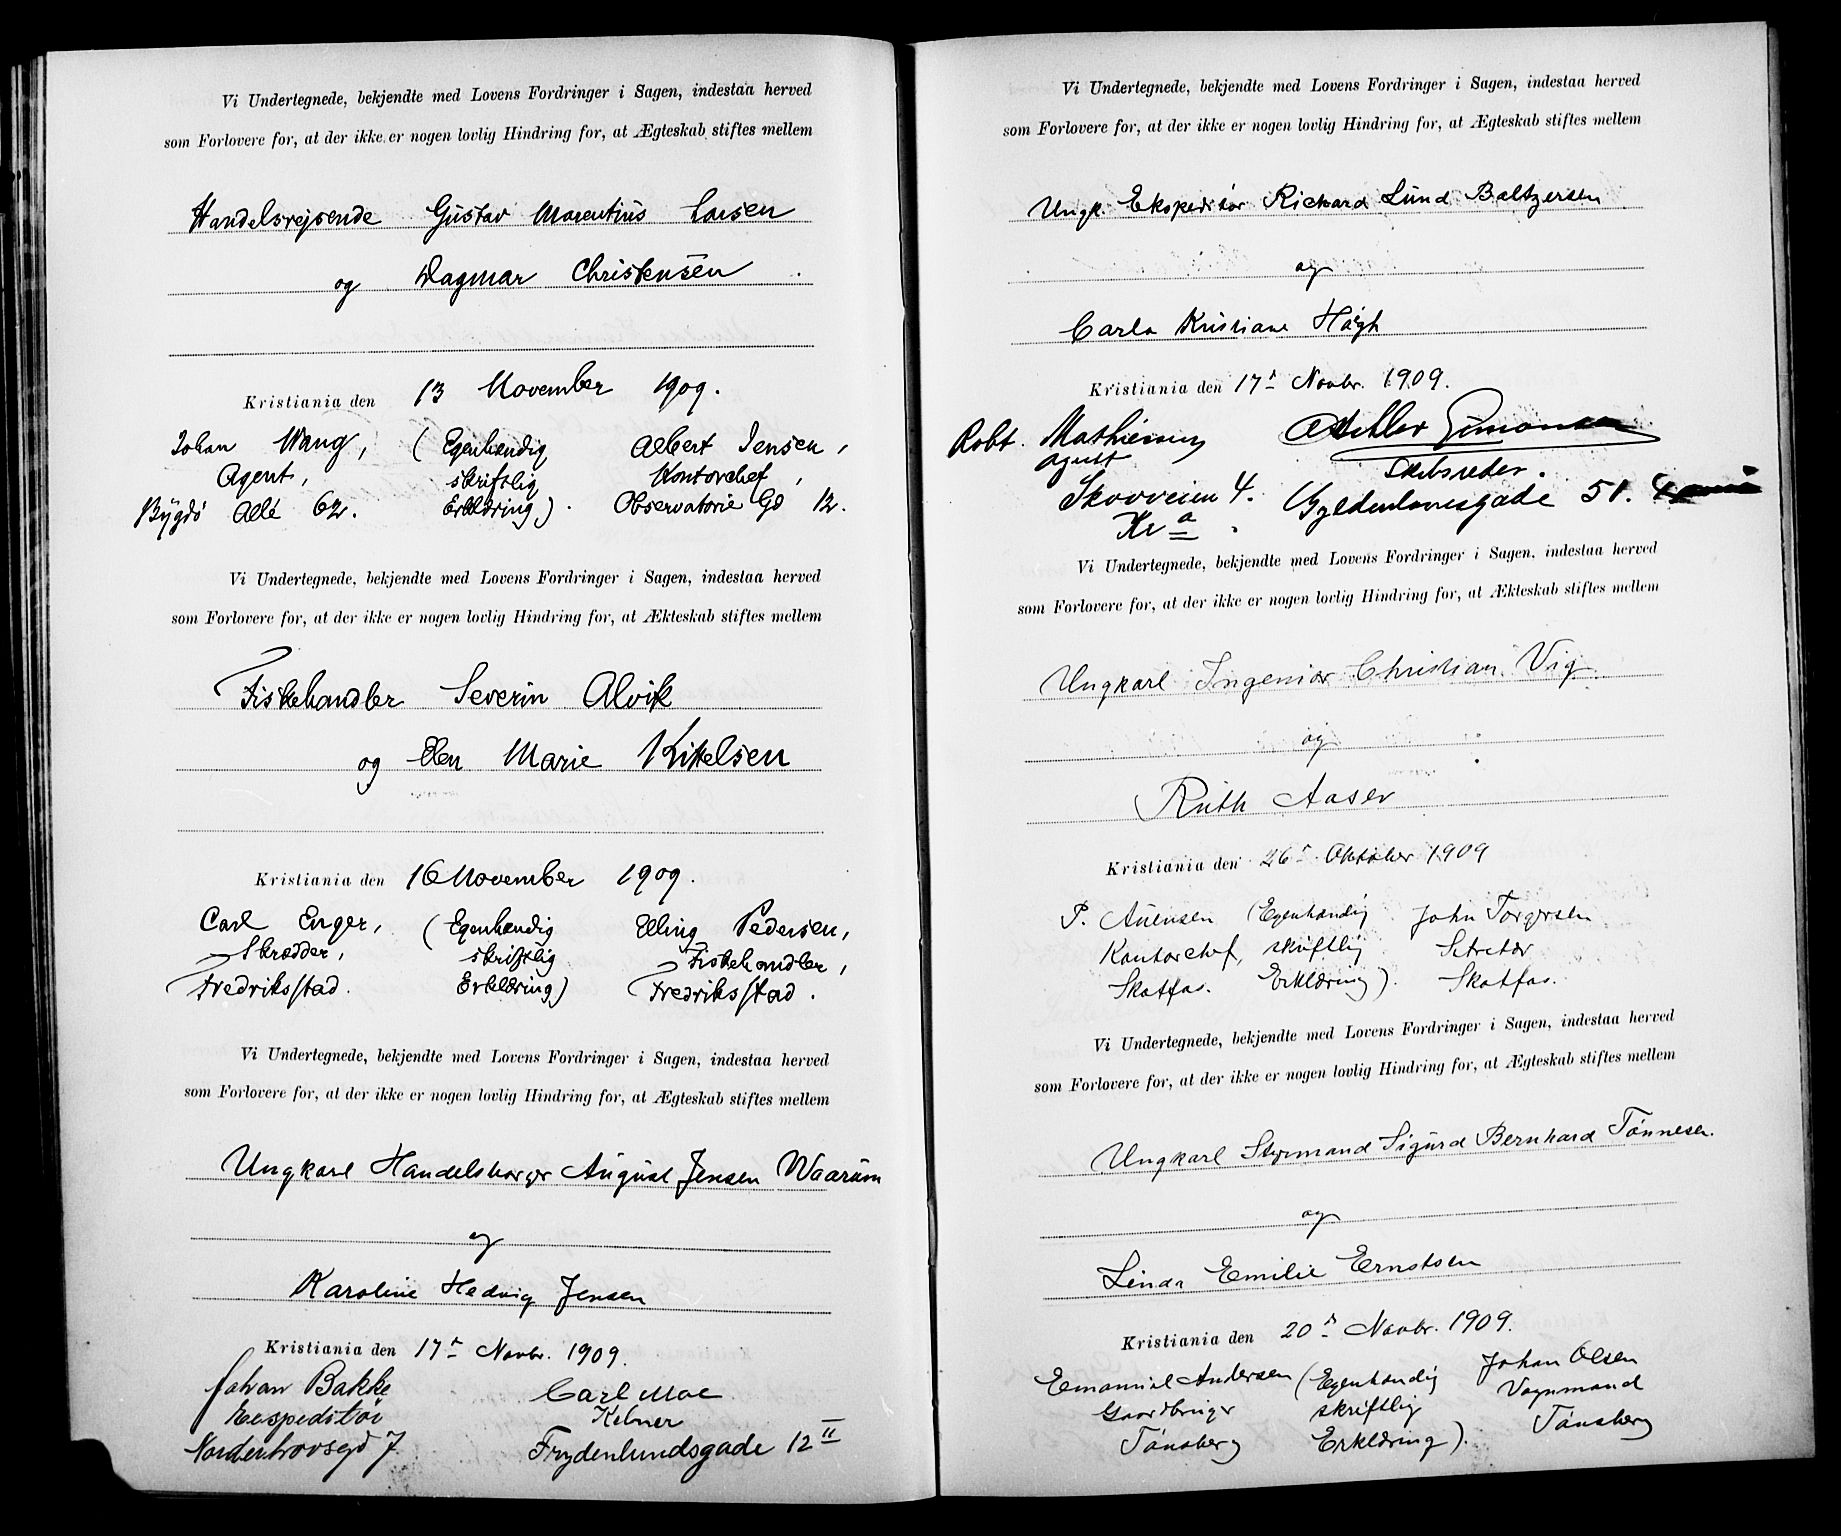 Vi Undertegnede, bekjendte med Lovens Fordringer i Sagen, indestaa herved
som Forlovere for, at der ikke er nogen lovlig Hindring for, at Ægteskab stiftes mellem
Handelsrejsende Gustav Marentius Larsen
og Dagmar Christensen
Kristiania den 13 November 1909.
Johan Wang, (Egenhændig Albert Jensen,
Agent, skriftlig Kontorchef,
Bygdö Allé 62. Erklæring). Observatorie Gd 12.
Vi Undertegnede, bekjendte med Lovens Fordringer i Sagen, indestaa herved
som Forlovere for, at der ikke er nogen lovlig Hindring for, at Ækteskab stiftes mellem
Fiskehandler Severin Alvik
og Elen Marie Kittelsen
Kristiania den 16 November 1909.
Carl Enger, (Egenhændig Elling Pedersen,
Skrædder, skriftlig Fiskehandler,
Fredriksstad. Erklæring) Fredriksstad.
Vi Undertegnede, bekjendte med Lovens Fordringer i Sagen, indestaa herved
som Forlovere for, at der ikke er nogen lovlig Hindring for, at Ægteskab stiftes mellem
Ungkarl Handelsborger August Jensen Waarum
og
Karoline Hedvig Jensen
Kristiania den 17de Novbr. 1909.
Johan Bakke Carl Moe
Exspeditör Kelner
Norderhovsgd 7 Frydenlundsgade 12 II
Vi Undertegnede, bekjendte med Lovens Fordringer i Sagen, indestaa herved
som Forlovere for, at der ikke er nogen lovlig Hindring for, at Ægteskab stiftes mellem
Ungk. Ekspeditør Richard Lund Baltzersen
og
Carla Kristiane Høegh
Kristiania den 17de Novbr. 1909.
Robt. Mathiesen Simonsen
agent Skibsreder.
Skovveien 4. Gyldenlövesgade 51.
Kra.
Vi Undertegnede, bekjendte med Lovens Fordringer i Sagen, indestaa herved
som Forlovere for, at der ikke er nogen lovlig Hindring for, at Ækteskab stiftes mellem
Ungkarl Ingeniør Christian Vig.
og
Ruth Aaser
Kristiania den 26de Oktober 1909
P. Auensen (Egenhændig John Torgersen
Kontorchef, skriftlig Sekretær
Skotfos. Erklæring). Skotfos.
Vi Undertegnede, bekjendte med Lovens Fordringer i Sagen, indestaa herved
som Forlovere for, at der ikke er nogen lovlig Hindring for, at Ægteskab stiftes mellem
Ungkarl Styrmand Sigurd Bernhard Tønnesen.
og
Linda Emilie Ernstsen
Kristiania den 20de Novbr. 1909.
Emanuel Andersen (Egenhændig Johan Olsen
Gaardbruger skriftlig Vognmand
Tønsberg Erklæring). Tønsberg